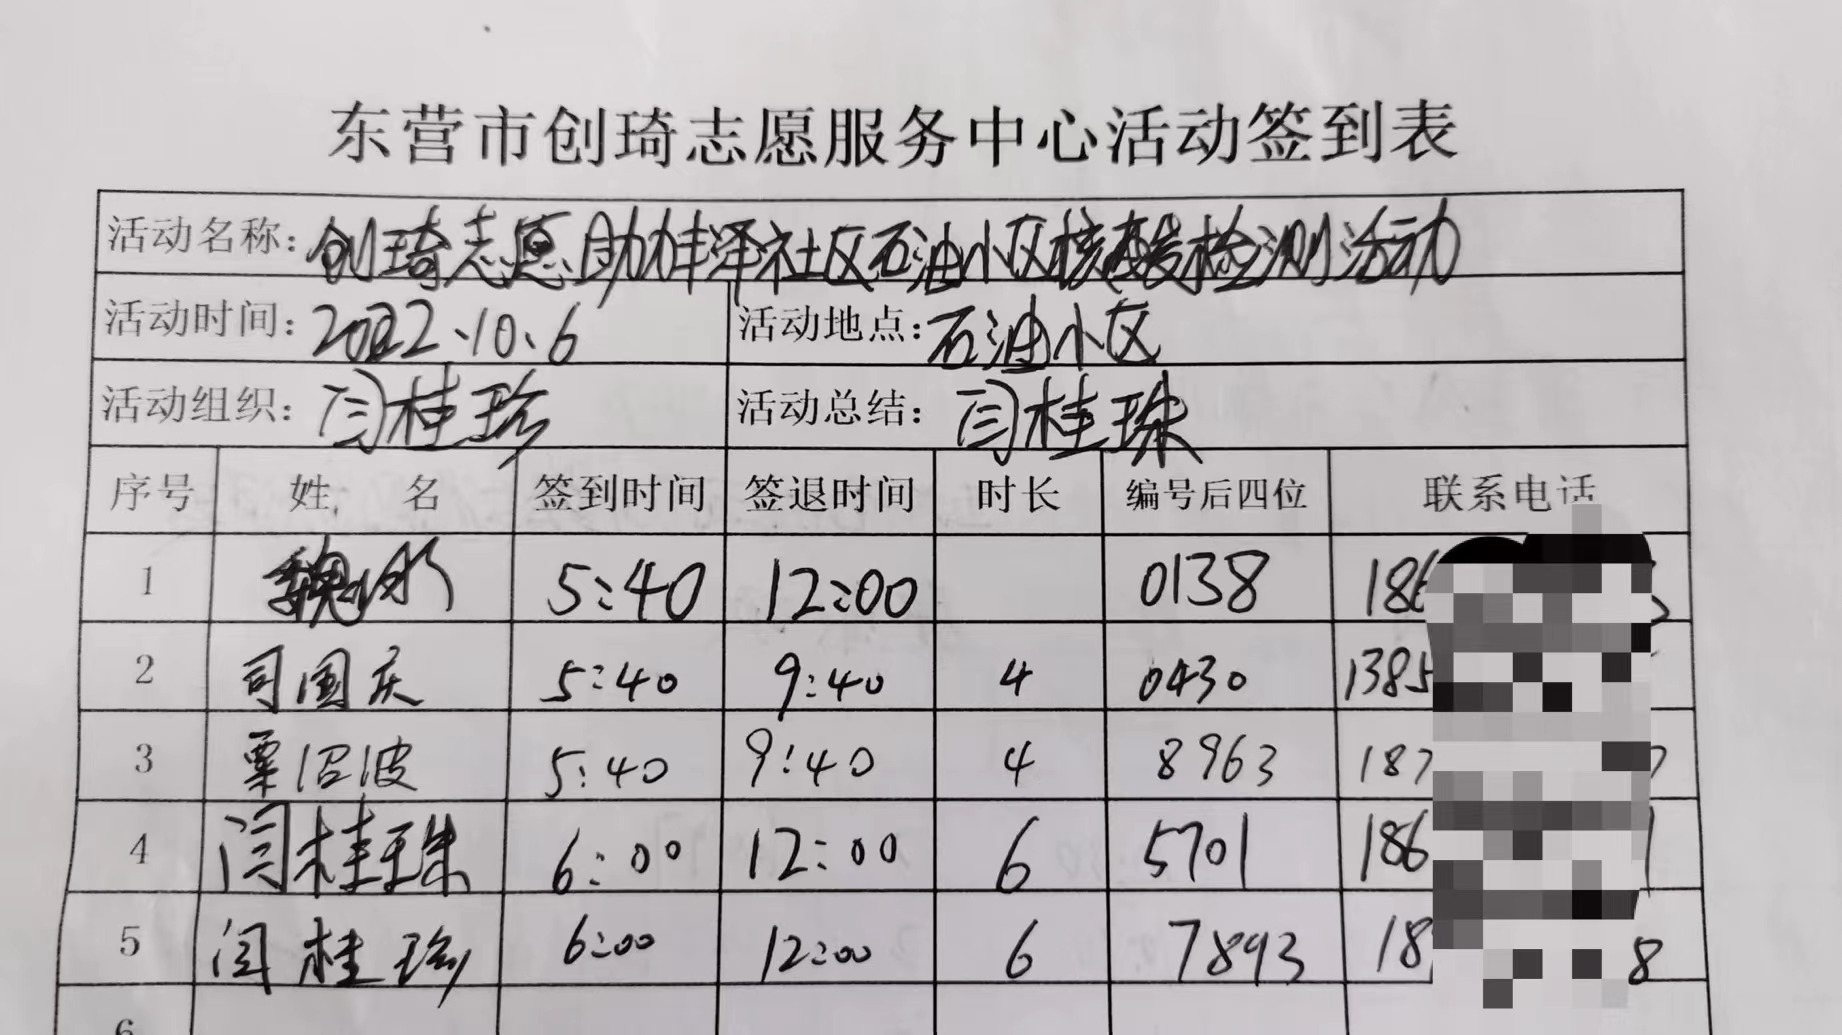 东营市创琦志愿服务中心活动签到表
活动名称：创琦志愿助力丰泽社区石油小区核酸检测活动
活动时间：2022、10、6 活动地点：石油小区
活动组织：闫桂珍 活动总结：闫桂珠
序号 姓 名 签到时间 签退时间 时长 编号后四位 联系电话
1 5:40 12:00 0138 186
2 司国庆 5:40 9:40 4 0430 1385
3 粟沼波 5:40 9:40 4 8963 187
4 闫桂珠 6:00 12:00 6 5701 186
5 闫桂珍 6:00 12:00 6 7893 18 8
6